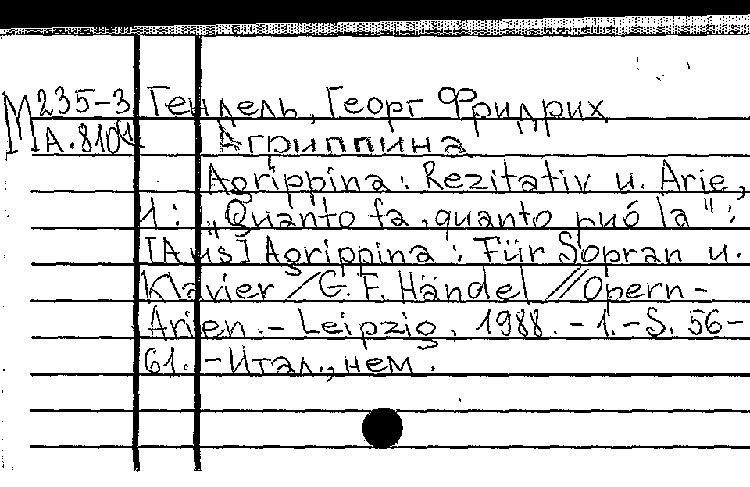 М 235-3 Гендель, Георг Фридрих
А.8104 Агриппина
Agrippina: Rezitativ u. Arie,
1: „Quanto fa, quanto puó la":
[Aus] Agrippina: Für Sopran u.
Klavier / G. F. Händel // Opern-
Arien. - Leipzig, 1988. - 1. - S. 56-
61. - Итал., нем.